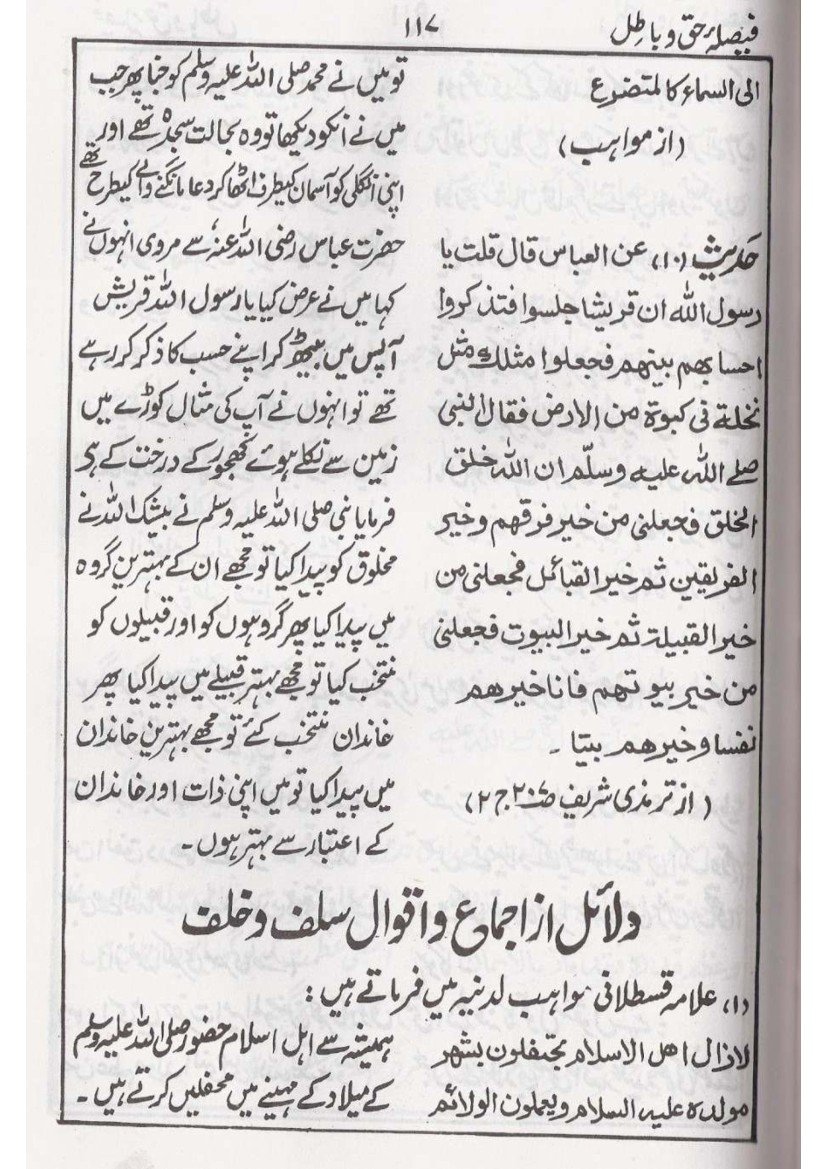 فیصلۂ حق و باطل
۱۱۷
الی السماء کالمتضرع
(از مواہب)
حدیث (۱۰) عن العباس قال قلت یا
رسول اللہ ان قریشا جلسوا فتذکروا
احسابہم بینہم فجعلوا مثلک مثل
نخلۃ فی کبوۃ من الارض فقال النبی
صلے اللہ علیہ وسلّم ان اللہ خلق
الخلق فجعلنی من خیر فرقہم وخیر
الفریقین ثم خیر القبائل فجعلنی من
خیر القبیلۃ ثم خیر البیوت فجعلنی
من خیر بیوتہم فانا خیرہم
نفسا وخیرہم بیتا ۔
(از ترمذی شریف ج ۲)
تو میں نے محمد صلی اللہ علیہ وسلم کو جنا پھر جب
میں نے انکو دیکھا تو وہ بحالت سجدہ تھے اور
اپنی انگلی کو آسمان کیطرف اٹھا کر دعا مانگنے والے کیطرح تھے
حضرت عباس رضی اللہ عنہ سے مروی انہوں نے
کہا میں نے عرض کیا یا رسول اللہ قریش
آپس میں بیٹھ کر اپنے حسب کا ذکر کر رہے
تھے تو انہوں نے آپ کی مثال کوڑے میں
زمین سے نکلے ہوئے کھجور کے درخت کے ہی
فرمایا نبی صلی اللہ علیہ وسلم نے بیشک اللہ نے
مخلوق کو پیدا کیا تو مجھے ان کے بہترین گروہ
میں پیدا کیا پھر گروہوں کو اور قبیلوں کو
منتخب کیا تو مجھے بہتر قبیلے میں پیدا کیا پھر
خاندان منتخب کئے تو مجھے بہترین خاندان
میں پیدا کیا تو میں اپنی ذات اور خاندان
کے اعتبار سے بہتر ہوں ۔
دلائل از اجماع و اقوال سلف و خلف
(۱) علامہ قسطلانی مواہب لدنیہ میں فرماتے ہیں :
لازال اھل الاسلام یحتفلون بشھر
مولدہ علیہ السلام ویعملون الولائم
ہمیشہ سے اہل اسلام حضور صلی اللہ علیہ وسلم
کے میلاد کے مہینے میں محفلیں کرتے ہیں ۔